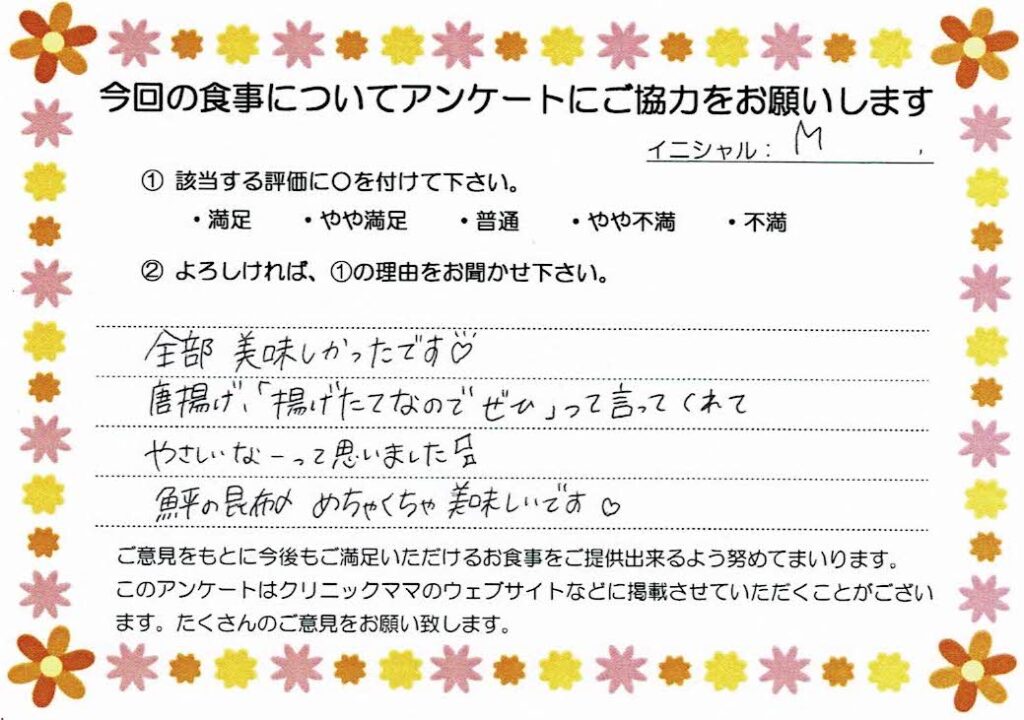 今回の食事についてアンケートにご協力をお願いします
イニシャル： M
① 該当する評価に○を付けて下さい。
・満足 ・やや満足 ・普通 ・やや不満 ・不満
② よろしければ、①の理由をお聞かせ下さい。
全部 美味しかったです♡
唐揚げ、「揚げたてなのでぜひ」って言ってくれて
やさしいなーって思いました
鮃の昆布〆 めちゃくちゃ美味しいです♡
ご意見をもとに今後もご満足いただけるお食事をご提供出来るよう努めてまいります。
このアンケートはクリニックママのウェブサイトなどに掲載させていただくことがござい
ます。たくさんのご意見をお願い致します。